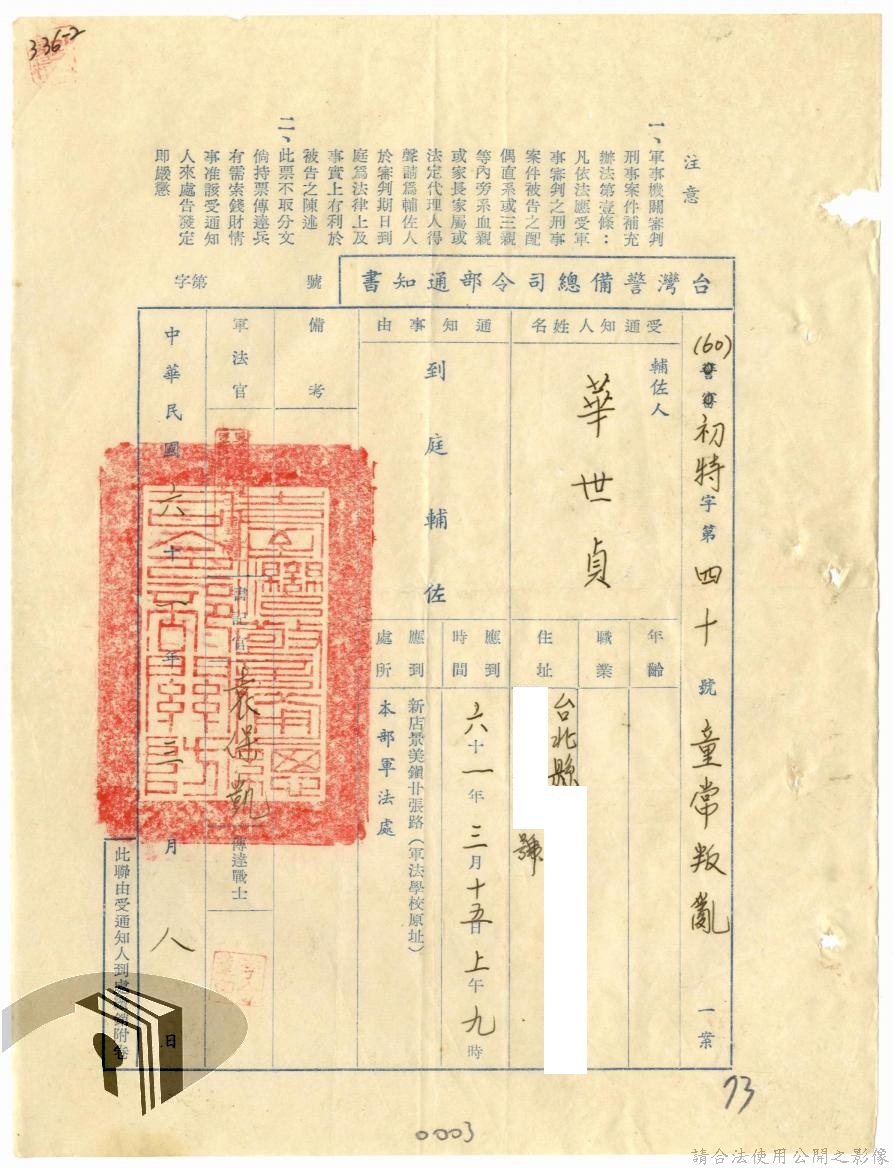 336-2
注意
一、軍事機關審判
刑事案件補充
辦法第壹條：
凡依法應受軍
事審判之刑事
案件被告之配
偶直系或三親
等內旁系血親
或家長家屬或
法定代理人得
聲請為輔佐人
於審判期日到
庭為法律上及
事實上有利於
被告之陳述
二、此票不取分文
倘持票傳達兵
有需索錢財情
事准該受通知
人來處告發定
即嚴懲
台灣警備總司令部通知書
第字 號
(60)警審初特字第四十號童常叛亂一案
受通知人姓名
輔佐人
華世貞
年齡
職業
住址
台北縣
號
通知事由
到庭輔佐
應到時間
六十一年三月十五日上午九時
應到處所
新店景美鎮廿張路（軍法學校原址）
本部軍法處
備考
軍法官
書記官袁保凱
傳達戰士
中華民國六十一年三月八日
此聯由受通知人到處繳銷附卷
73
0003
請合法使用公開之影像